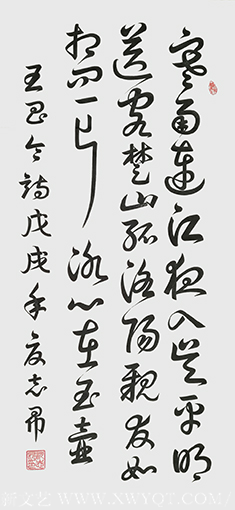 寒雨連江夜入吴平明
送客楚山孤洛陽親友如
相问一片冰心在玉壺
王昌令詩戊戌年夏志
文艺 WWW.XWYQT.COM/